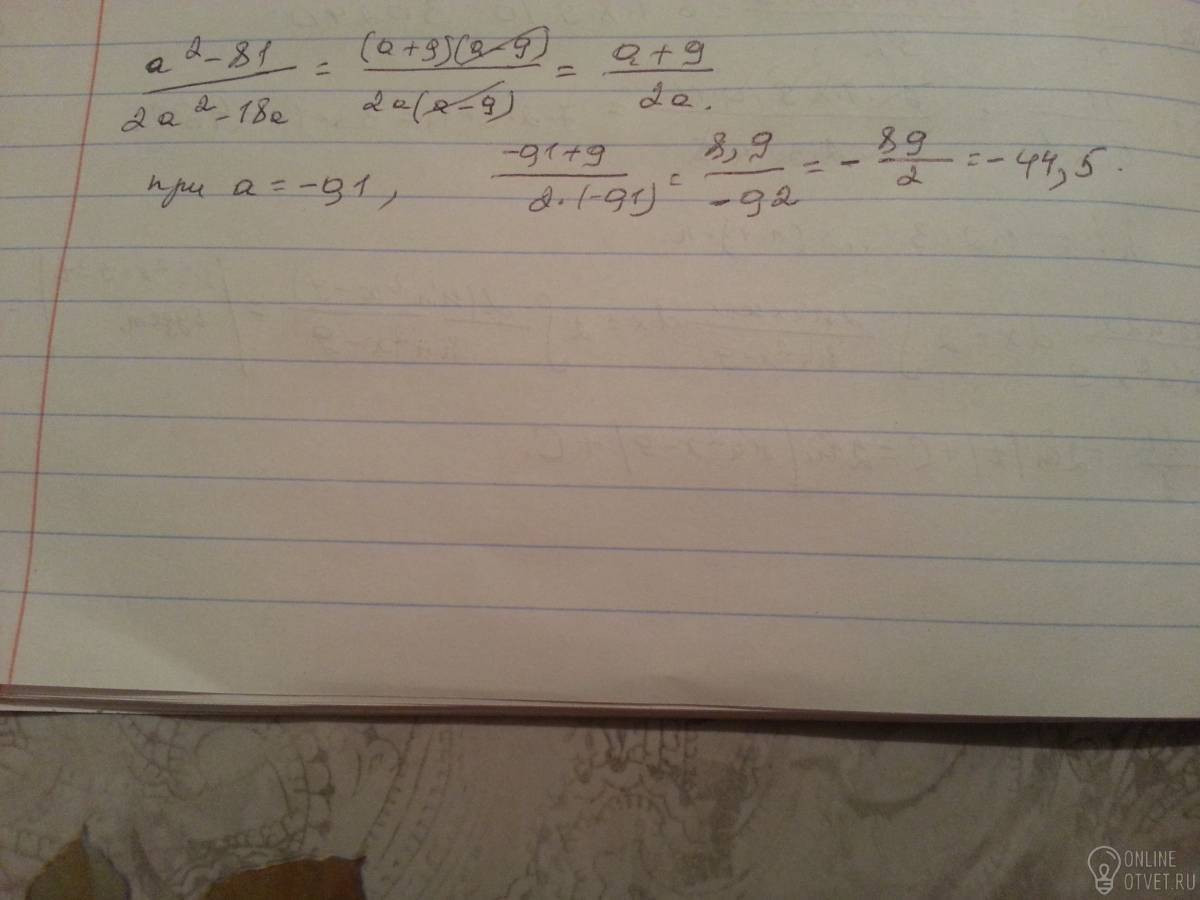 a² - 81 / 2a² - 18a = (a + 9)(a - 9) / 2a(a - 9) = a + 9 / 2a.
при a = -0,1, -0,1 + 9 / 2·(-0,1) = 8,9 / -0,2 = - 89 / 2 = -44,5.
ONLINE
OTVET.RU